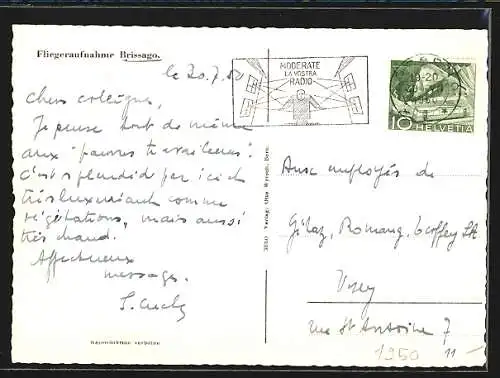 Fliegeraufnahme Brissago.
le 20.7.50
Chers collègues,
Je pense tout de même
aux "pauvres travailleurs"
C'est splendid par ici et
très luxuriant comme
végétations, mais aussi
très chaud.
Affectueux
messages.
MODERATE
LA VOSTRA
RADIO
10 HELVETIA
Verlag: Otto Wyrsch, Bern.
Aux employés de
Vevey
rue St Antoine 7
1950 11 -